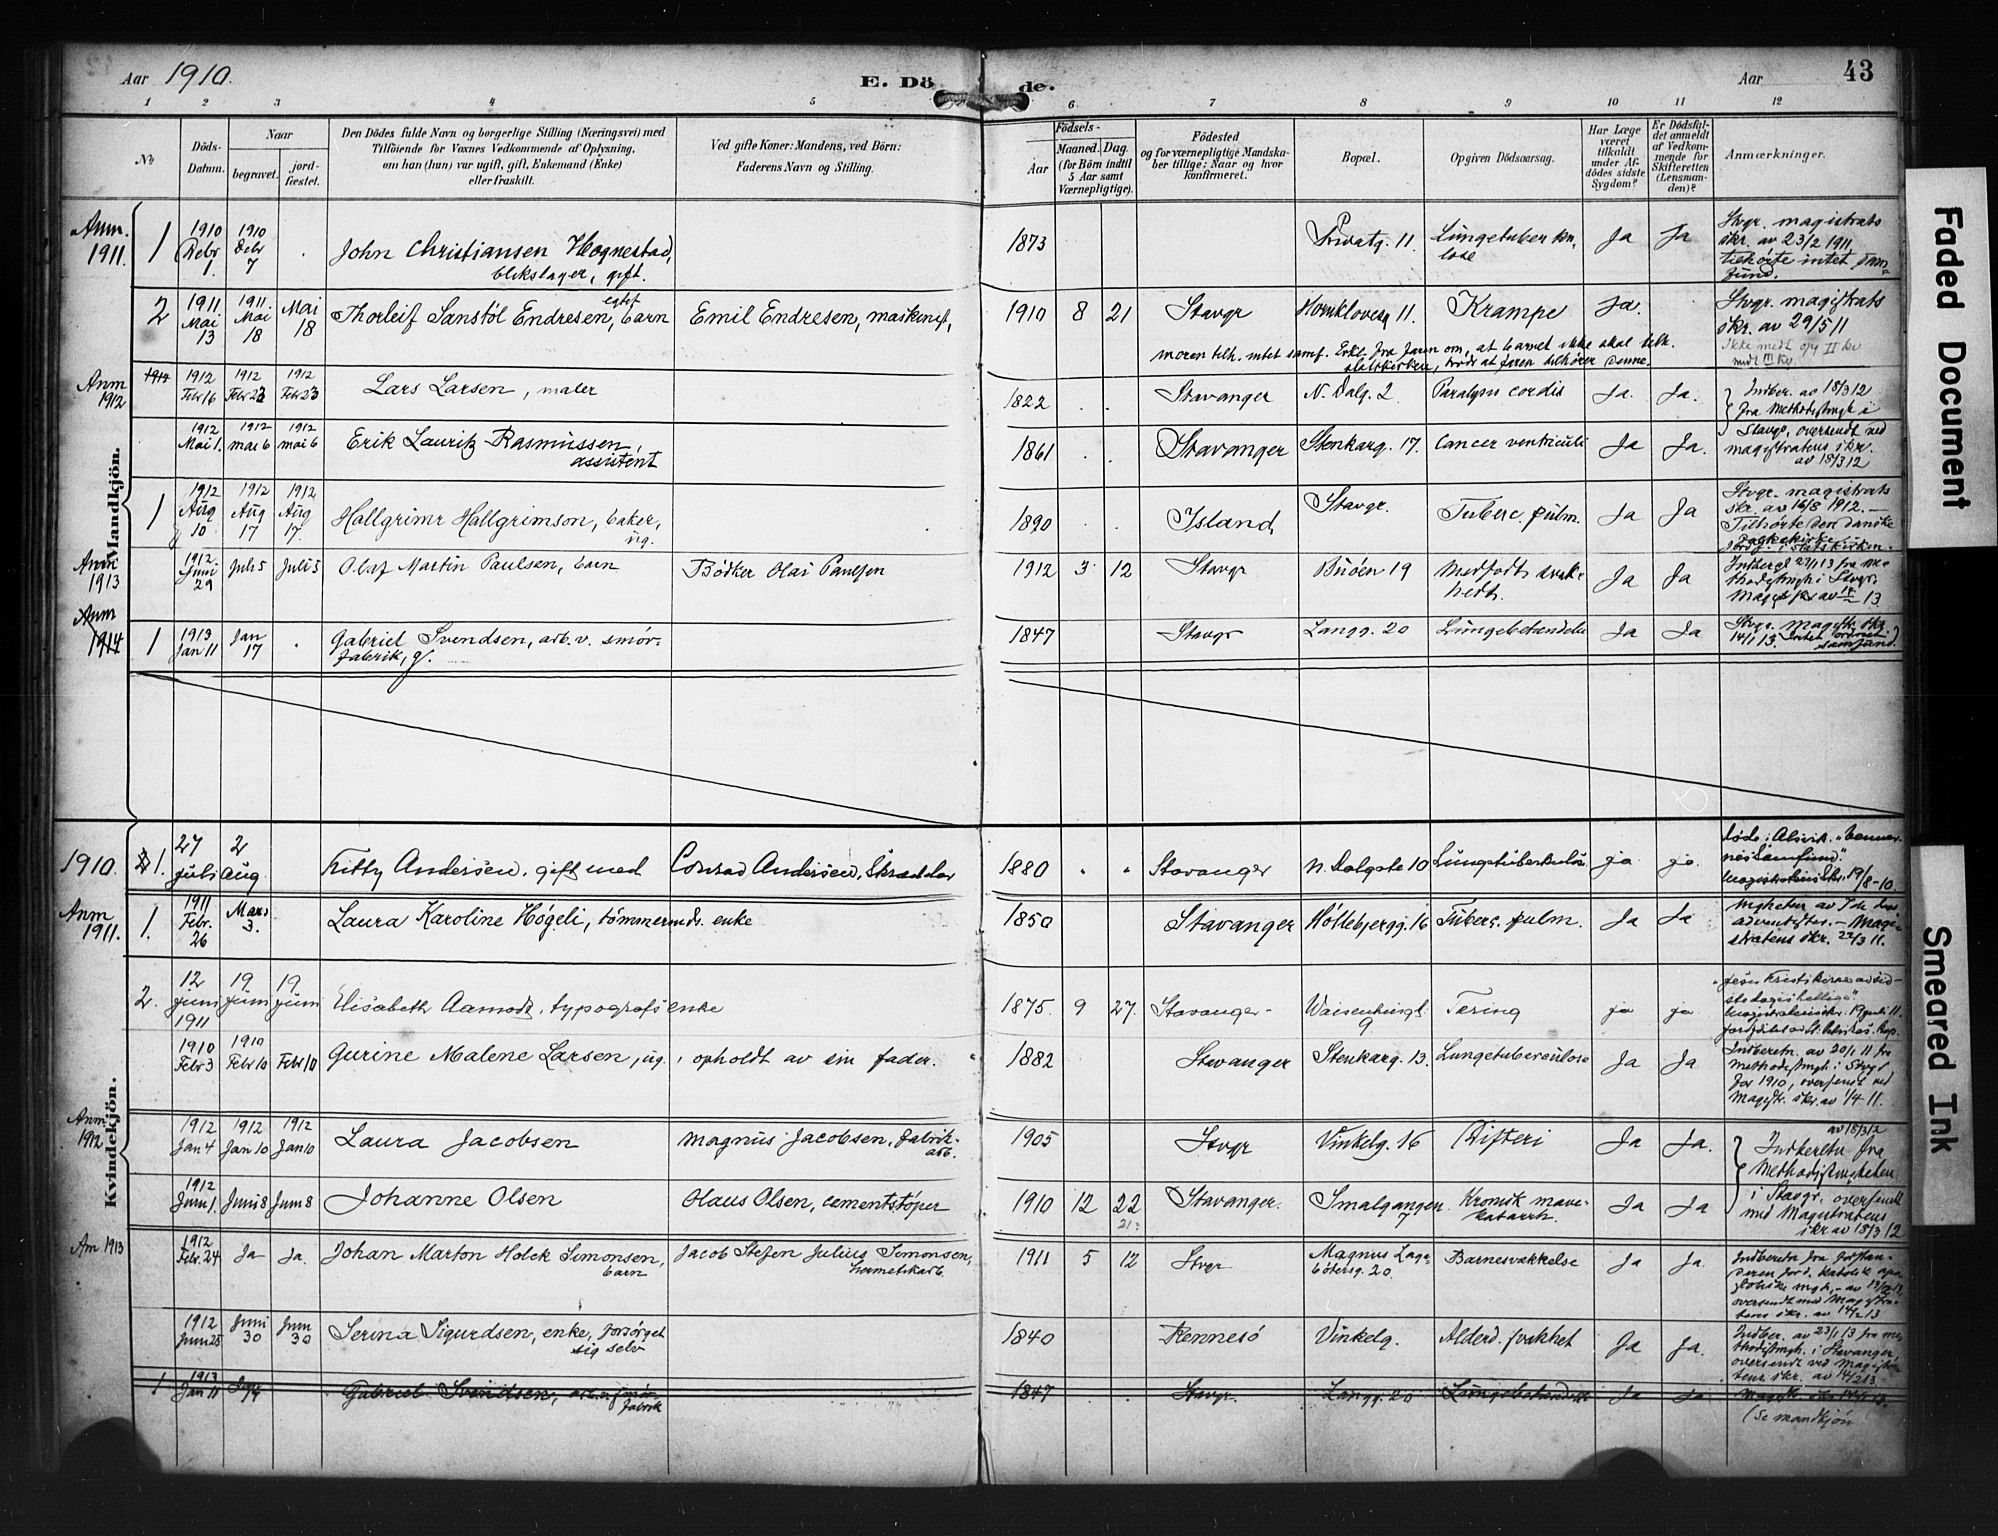 Aar 1910.
E. Dö de.
Aar 43
1 2 3 4 5 6 7 8 9 10 11 12
No
Döds-Datum.
Naar
begravet.
jord-fæstet.
Den Dödes fulde Navn og borgerlige Stilling (Næringsvei) med
Tilföiende for Voxnes Vedkommende af Oplysning,
om han (hun) var ugift, gift, Enkemand (Enke)
eller fraskilt.
Ved gifte Koner: Mandens, ved Börn:
Faderens Navn og Stilling.
Födsels-
Aar
Maaned. Dag.
(for Börn indtil
5 Aar samt
Værnepligtige).
Födested
og for værnepligtige Mandska-
ber tillige: Naar og hvor
konfirmeret.
Bopæl.
Opgiven Dödsaarsag.
Har Læge
været
tilkaldt
under Af-
dödes sidste
Sygdom?
Er Dödsfal-
det anmeldt
af Vedkom-
mende for
Skifteretten
(Lensman-
den)?
Anmærkninger.
Mandkjön.
Anm. 1911. 1 1910 Febr 1. 1910 Febr 7 . John Christiansen Hognestad, blikslager, gift. 1873 Privatg. 11. Lungetuberkulose Ja Ja Stvgr. magistrats
skr. av 23/2 1911,
tilhörte intet sam-
fund.
2 1911 Mai 13 1911. Mai 18 Mai 18 Thorleif Sanstöl Endresen, egtef barn Emil Endresen, 1910 8 21 Stavgr 11. Krampe Ja. Stvgr. magistrats
skr. av 29/5 11
moren tilh. intet samf. Erkl. fra faren om, at barnet ikke skal tilh.
statskirken, trods at faren tilhører denne.
Anm 1912 1912 1912 Febr 16 1912 Febr 23 1912 Febr 23 Lars Larsen, maler 1822 . . Stavanger N. Dalg. 2 Paralysis cordis Ja. Ja. Indber. av 18/3 12
fra Methodistmgh i
1912 Mai 1. 1912 mai 6 1912 mai 6 Erik Lauritz Rasmussen, assistent 1861 . . Stavanger Stenkarg. 17. Cancer ventriculi Ja Ja. Stavgr, oversendt ved
magistratens skr.
av 18/3 12
1 1912 Aug 10 1912 Aug 17 1912 Aug 17. Hallgrimr Hallgrimson, baker, ug. 1890 . . Island Stavgr. Tuberc. pulm. Ja Ja Stvgr. magistrats
skr. av 16/8 1912. —
Tilhörte den danske
folkekirke.
Anm 1913 1912. Juni 29 Juli 5 Juli 5 Olaf Martin Paulsen, barn Bödker Olai Paulsen 1912 3 12 Stavgr Buöen 19 Medfödt svak-
hedt. Ja Ja
Anm 1914 1 1913 Jan 11 Jan 17 . Gabriel Svendsen, arb. v. smör-
fabrik, g. 1847 Stavgr Langg. 20 Lungebetændelse Ja Ja Stvgr. magistr. skr.
14/1 13. Intet ordnet
samfund.
Kvindekjön.
1910. 1. 27 juli 2 aug. Kitty Andersen, gift med Conrad Andersen, Skrædder 1880 . . Stavanger n. Dalgate 10 Lungetuberkulose ja ja.
Magistratens Skr. 19/8-10.
Anm 1911. 1. 1911 Febr. 26 Mars 3. Laura Karoline Högeli, tömmermds. enke 1850 Stavanger 16 Tuberc. pulm. Ja Ja
adventister. — Magi-
stratens skr. 22/3 11.
2. 12 Juni 1911 19 Juni 19 Juni Elisabeth Aamodt, typografs enke 1875. 9 27. Stavanger - Waisenhusgt. 9 Tæring ja ja
1910 Febr 3 1910 Febr 10 Febr 10 Gurine Malene Larsen, ug., opholdt av sin fader. 1882 Stavanger Stenkarg. 13. Lungetuberculose Ja Ja Indberetn. av 20/1 11 fra
Methodistmgh i Stvgr
for 1910, oversendt ved
Magistr. skr. av 1/4 11.
Anm 1912 1912 Jan 4 1912 Jan 10 1912 Jan 10 Laura Jacobsen Magnus Jacobsen, fabrik-
arb. 1905 Stvgr Vinkelg. 16 Difteri Ja Ja. av 18/3/2
Indberetn fra
Methodistmenigheten
1912 Juni 1 Juni 8 Juni 8 Johanne Olsen Olaus Olsen, cementstöper 1910 12 22 21: Stavanger. Smalgangen 7 Kronisk mave-
katarrh. Ja Ja i Stavgr, oversendt
med Magistratens
skr av 18/3 12
Am 1913 1912 Febr. 24 Ja Ja. Johan Marton Holck Simonsen, barn Jacob Stefen Julius Simonsen, hermetikarb. 1911 5 12 Stvgr Magnus Laga-
bötersg. 20. Barnesvakkelse Ja Ja. Indberetn fra forstan-
deren
oversendt med Magistra-
tens skr. av 14/2 13
1912 Juni 25 Juni 30 Juni 30 Serina Sigurdsen, enke, forsörget
sig selv 1840 Rennesö Vinkelg. Alderd. svakhet Ja Ja. Indber. av 23/1 13 fra me-
thodistmgh. i Stavanger
oversendt ved magistra-
tens skr. av 14/2 13
1 1913 Jan 11 Gabriel Svendsen, arb. v. smör-
fabrik 1847 Stavgr. Langg. 20 Lungebetændelse Ja Ja
(se mandkjön
Faded Document
Smeared Ink